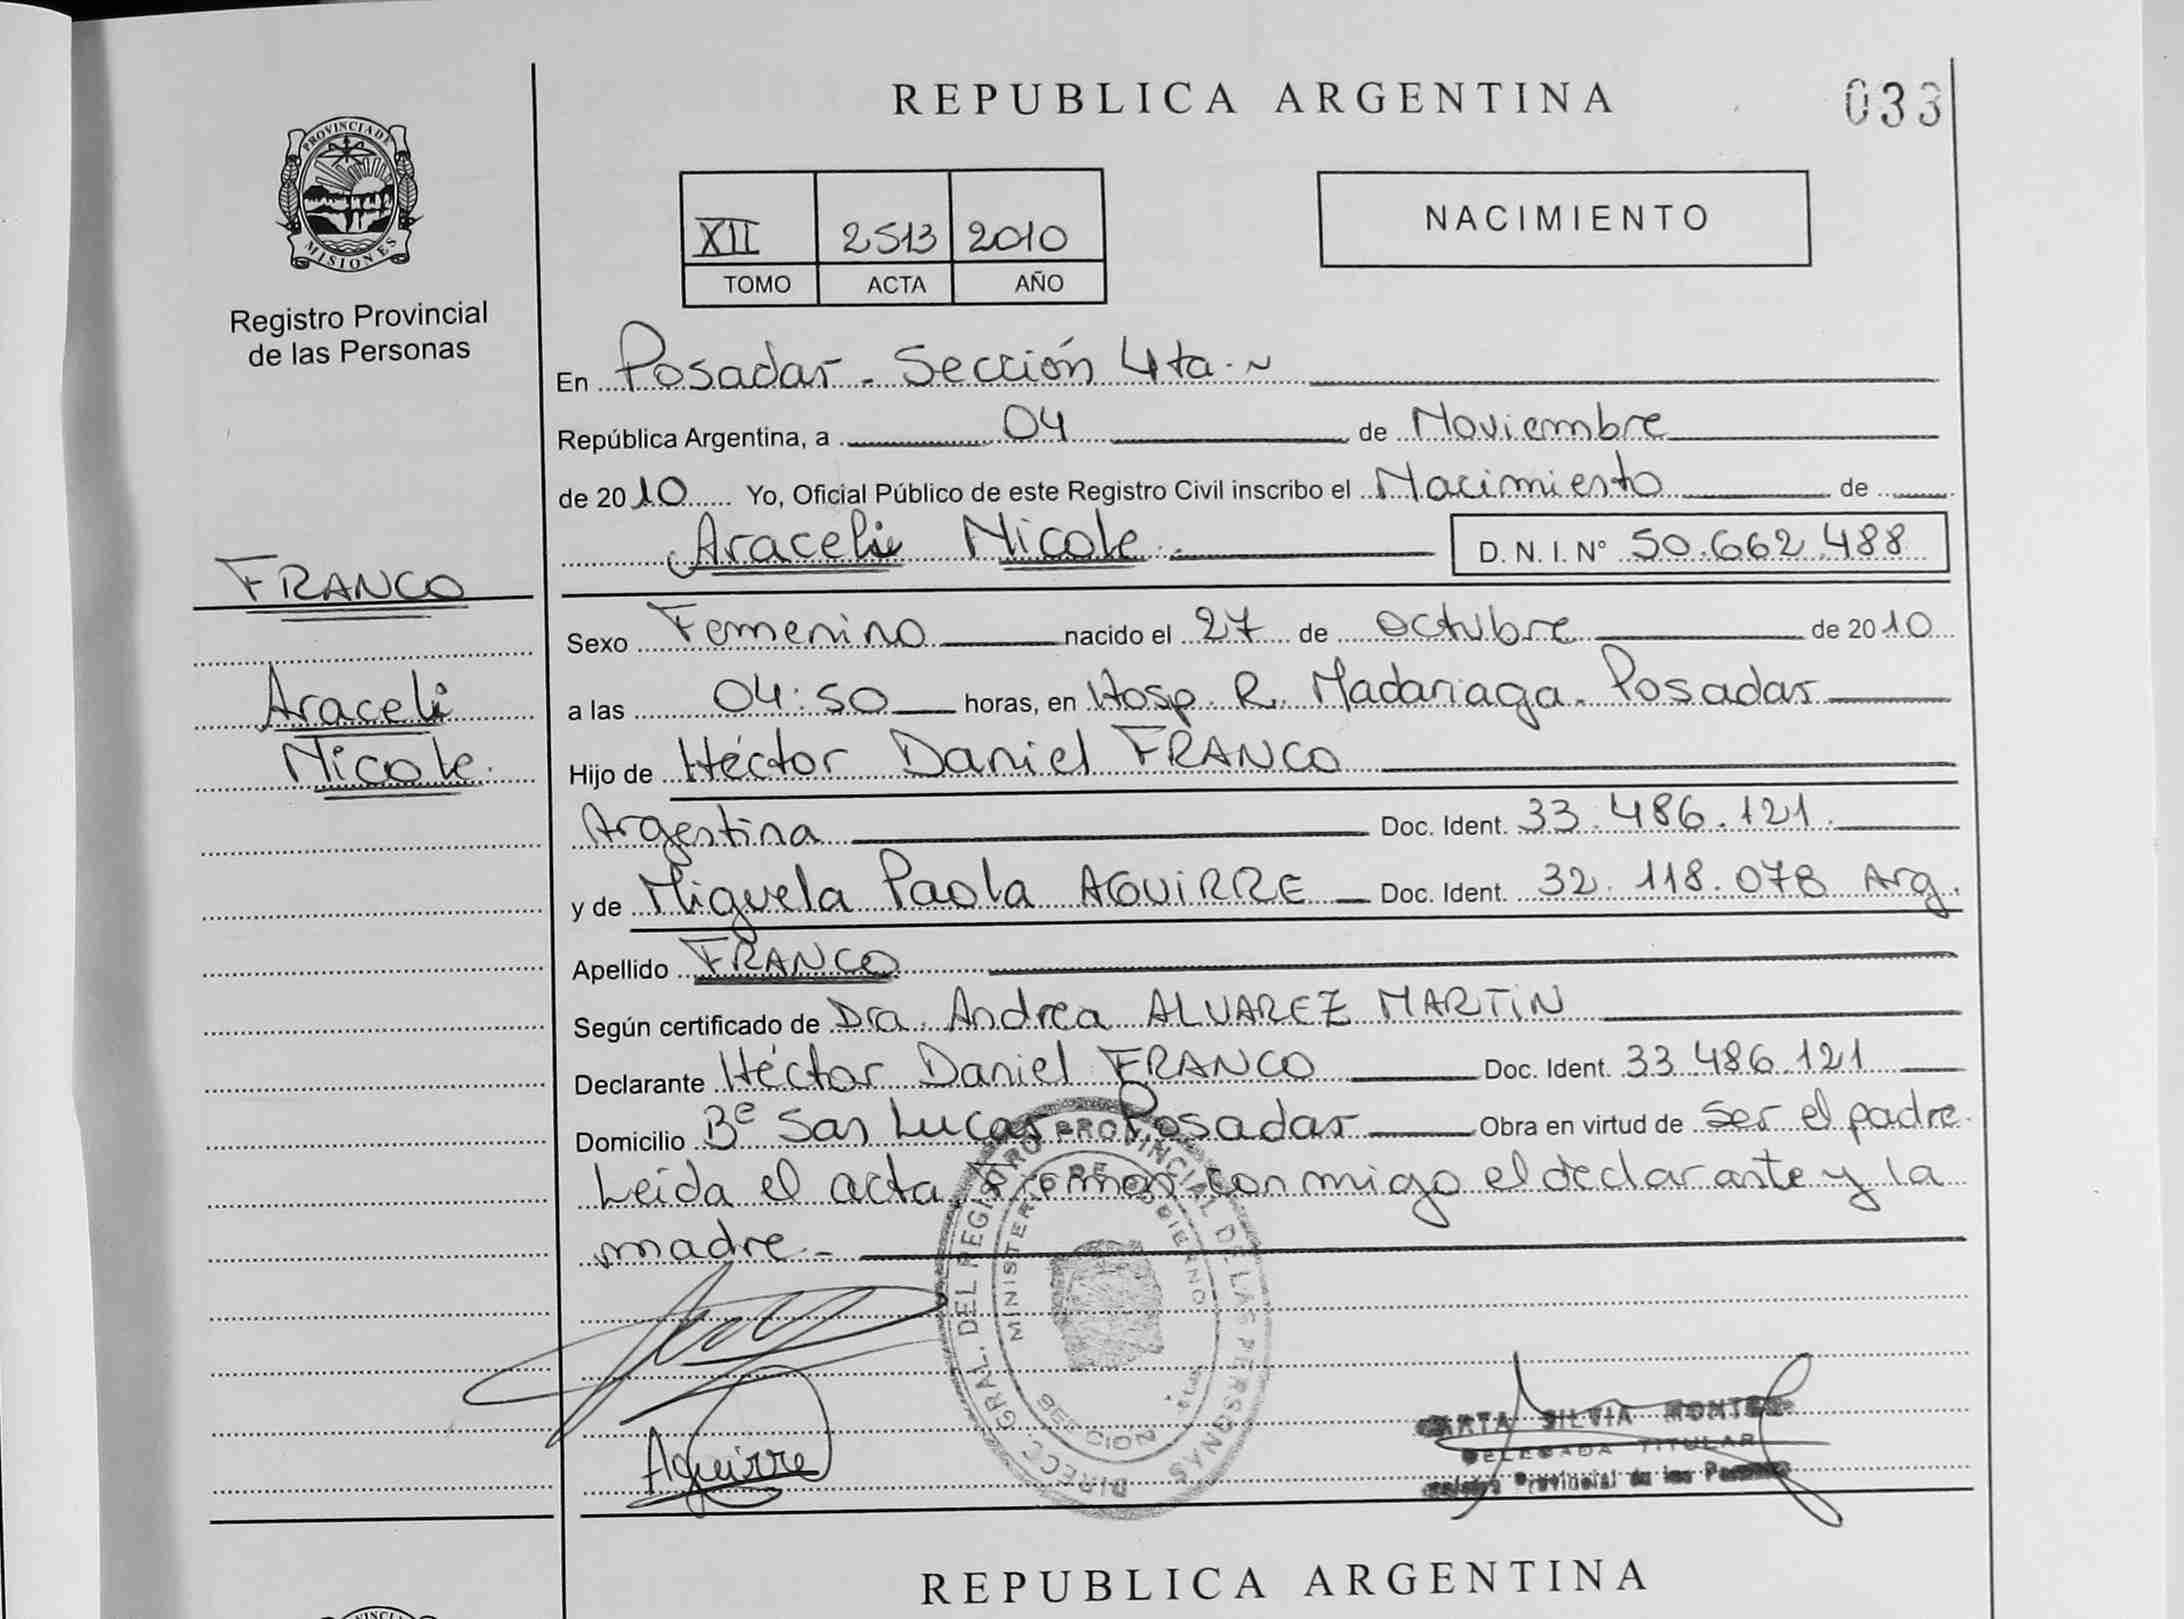 REPUBLICA ARGENTINA
033
PROVINCIA DE
MISIONES
Registro Provincial
de las Personas
XII 2513 2010
TOMO ACTA AÑO
NACIMIENTO
En Posadas - Sección 4ta.
República Argentina, a 04 de Noviembre
de 2010 Yo, Oficial Público de este Registro Civil inscribo el Nacimiento de
Araceli Nicole.
D. N. I. N° 50.662.488
FRANCO
Araceli
Nicole.
Sexo Femenino nacido el 27 de octubre de 2010
a las 04:50 horas, en Hosp. R. Madariaga. Posadas
Hijo de Héctor Daniel FRANCO
Argentina Doc. Ident. 33.486.121.
y de Miguela Paola AGUIRRE Doc. Ident. 32.118.078 Arg.
Apellido FRANCO
Según certificado de Dra. Andrea ALVAREZ MARTIN
Declarante Héctor Daniel FRANCO Doc. Ident. 33.486.121
Domicilio Bº San Lucas Posadas Obra en virtud de ser el padre.
Leída el acta, Firman conmigo el declarante y la
madre.-
DIRECC. GRAL. DEL REGISTRO PROVINCIAL DE LAS PERSONAS
MINISTERIO DE GOBIERNO
SECCION 4ta
Aguirre
SILVIA
DELEGADA TITULAR
Provincial de las
REPUBLICA ARGENTINA